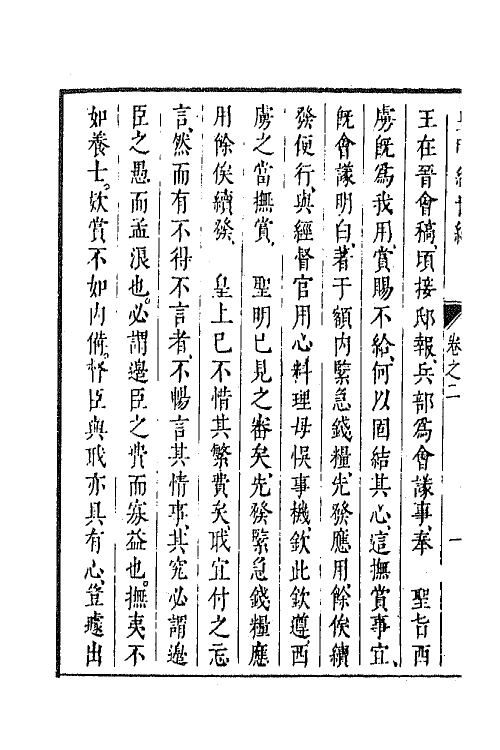 皇明經世編
卷之二
一
王在晉會稿、頃接邸報、兵部為會議事、奉　聖旨西
虜既為我用、賞賜不給、何以固結其心、這撫賞事宜、
既會議明白、著于額內緊急錢糧先發應用、餘俟續
發便行、與經督官用心料理毋悞事機、欽此欽遵、西
虜之當撫賞、　聖明已見之審矣、先發緊急錢糧應
用餘俟續發、　皇上已不惜其繁費矣、職宜付之忘
言、然而有不得不言者、不暢言其情事、其究必謂邊
臣之愚而孟浪也。必謂邊臣之費而寡益也。撫夷不
如養士。款賞不如內備。怪臣與職亦具有心、豈遽出